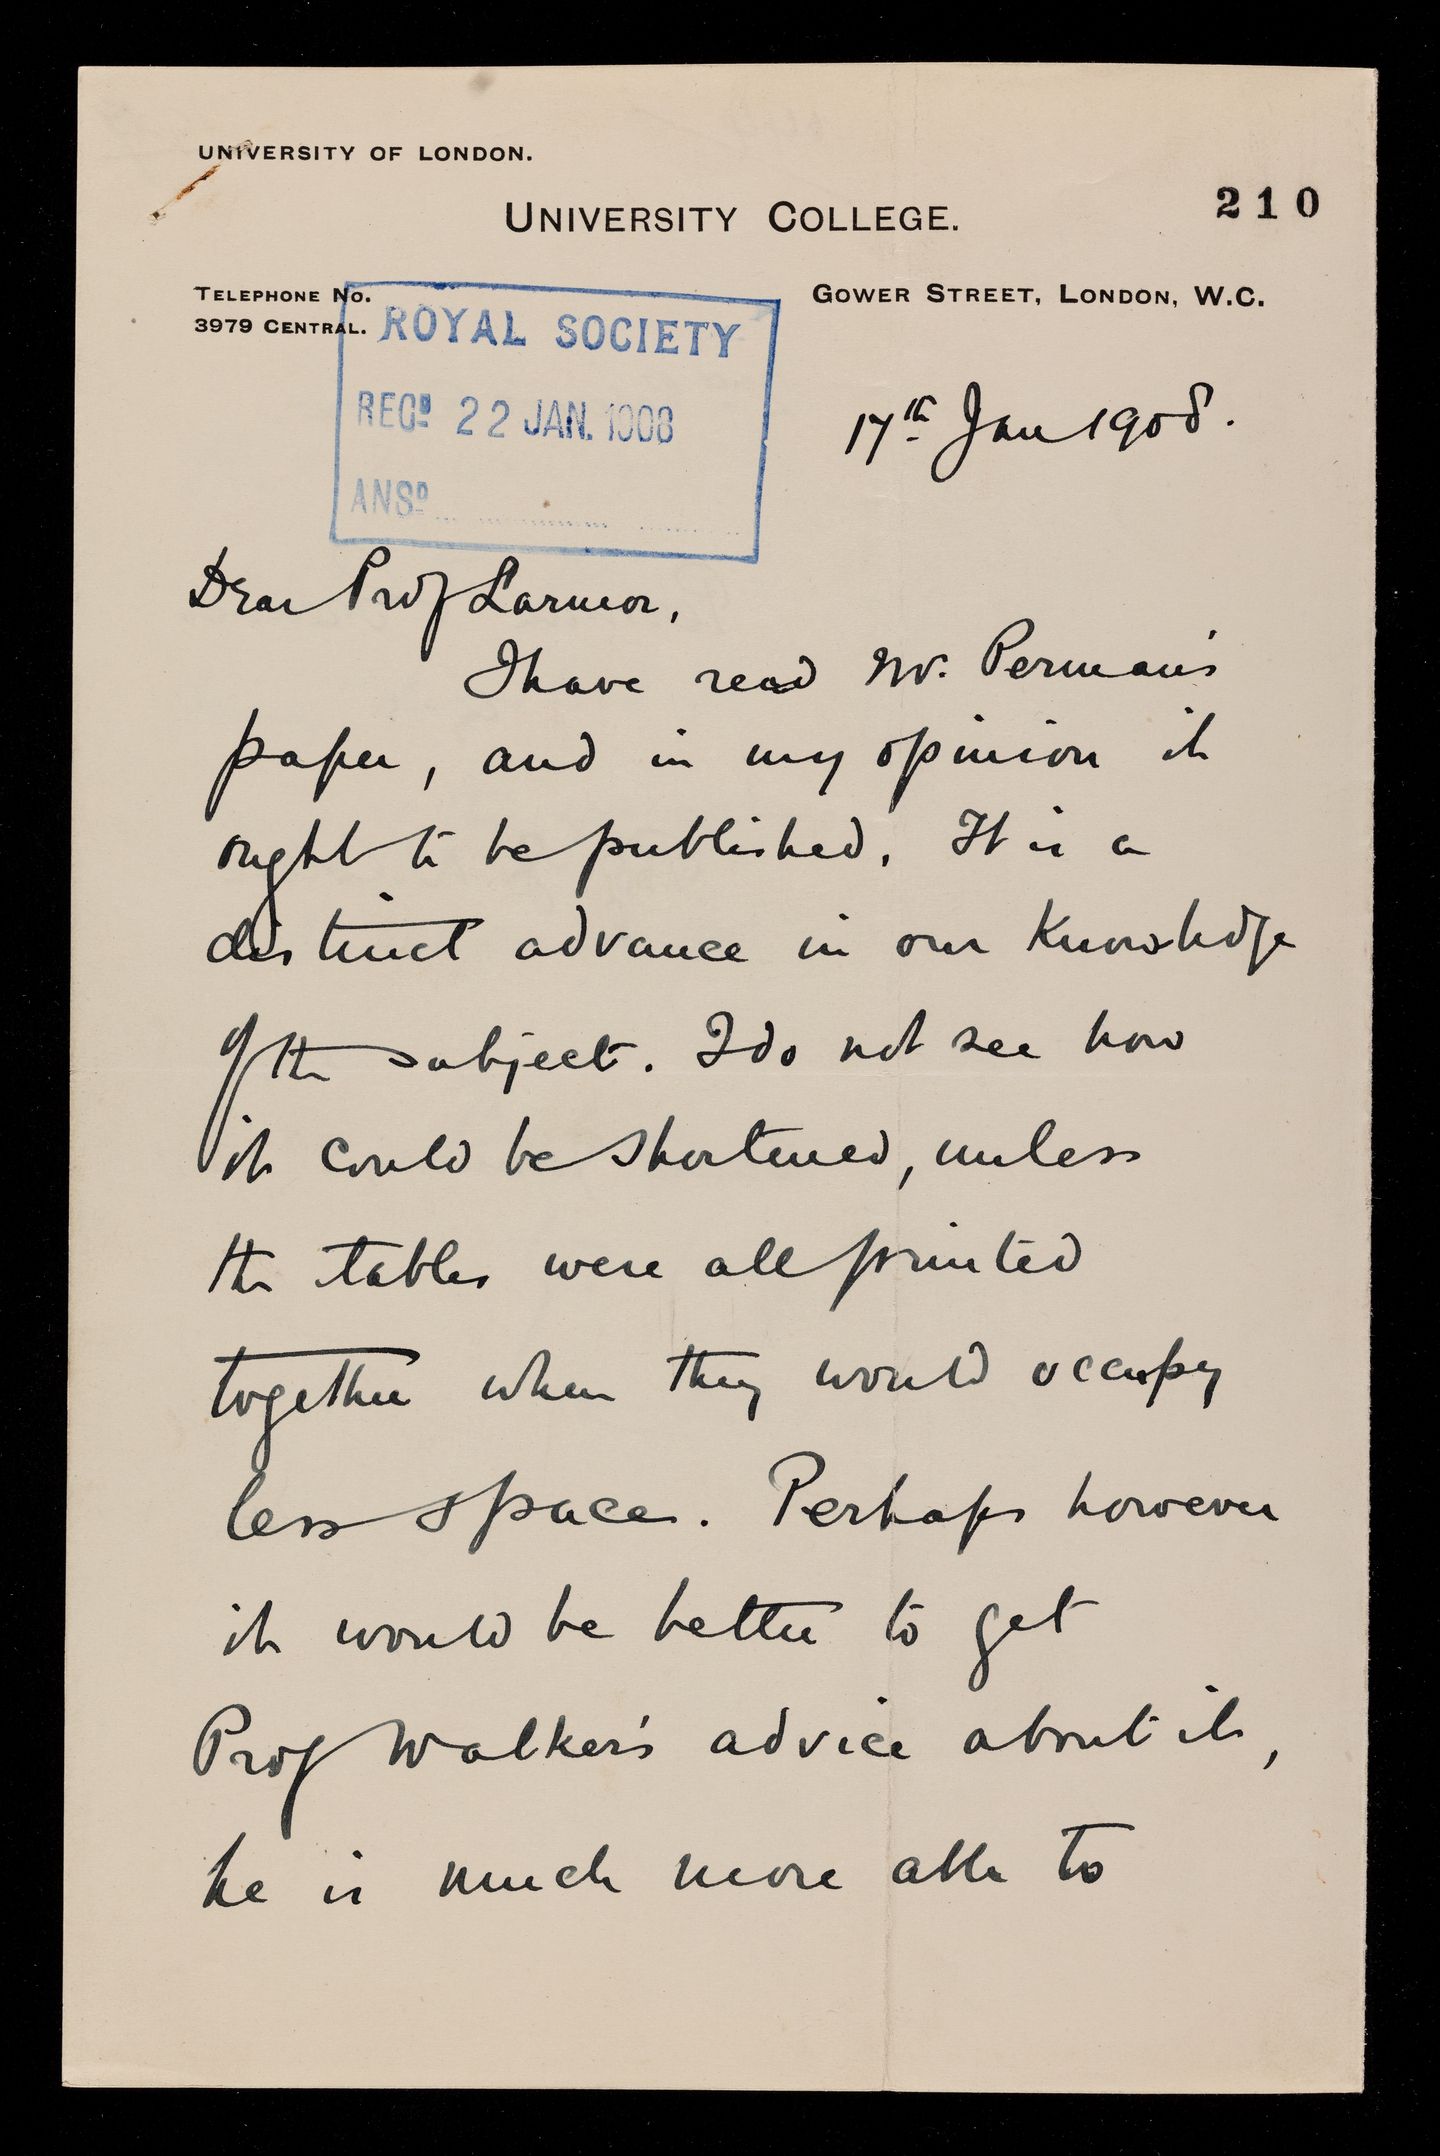 UNIVERSITY OF LONDON.
UNIVERSITY COLLEGE.
210
TELEPHONE No.
3979 CENTRAL.
GOWER STREET, LONDON, W.C.
ROYAL SOCIETY
RECD 22 JAN. 1908
ANSD
17th Jan 1908.
Dear Prof Larmor,
I have read Mr. Perman's
paper, and in my opinion it
ought to be published. It is a
distinct advance in our Knowledge
of the subject. I do not see how
it could be shortened, unless
the tables were all printed
together when they would occupy
less space. Perhaps however
it would be better to get
Prof Walker's advice about it,
he is much more able to